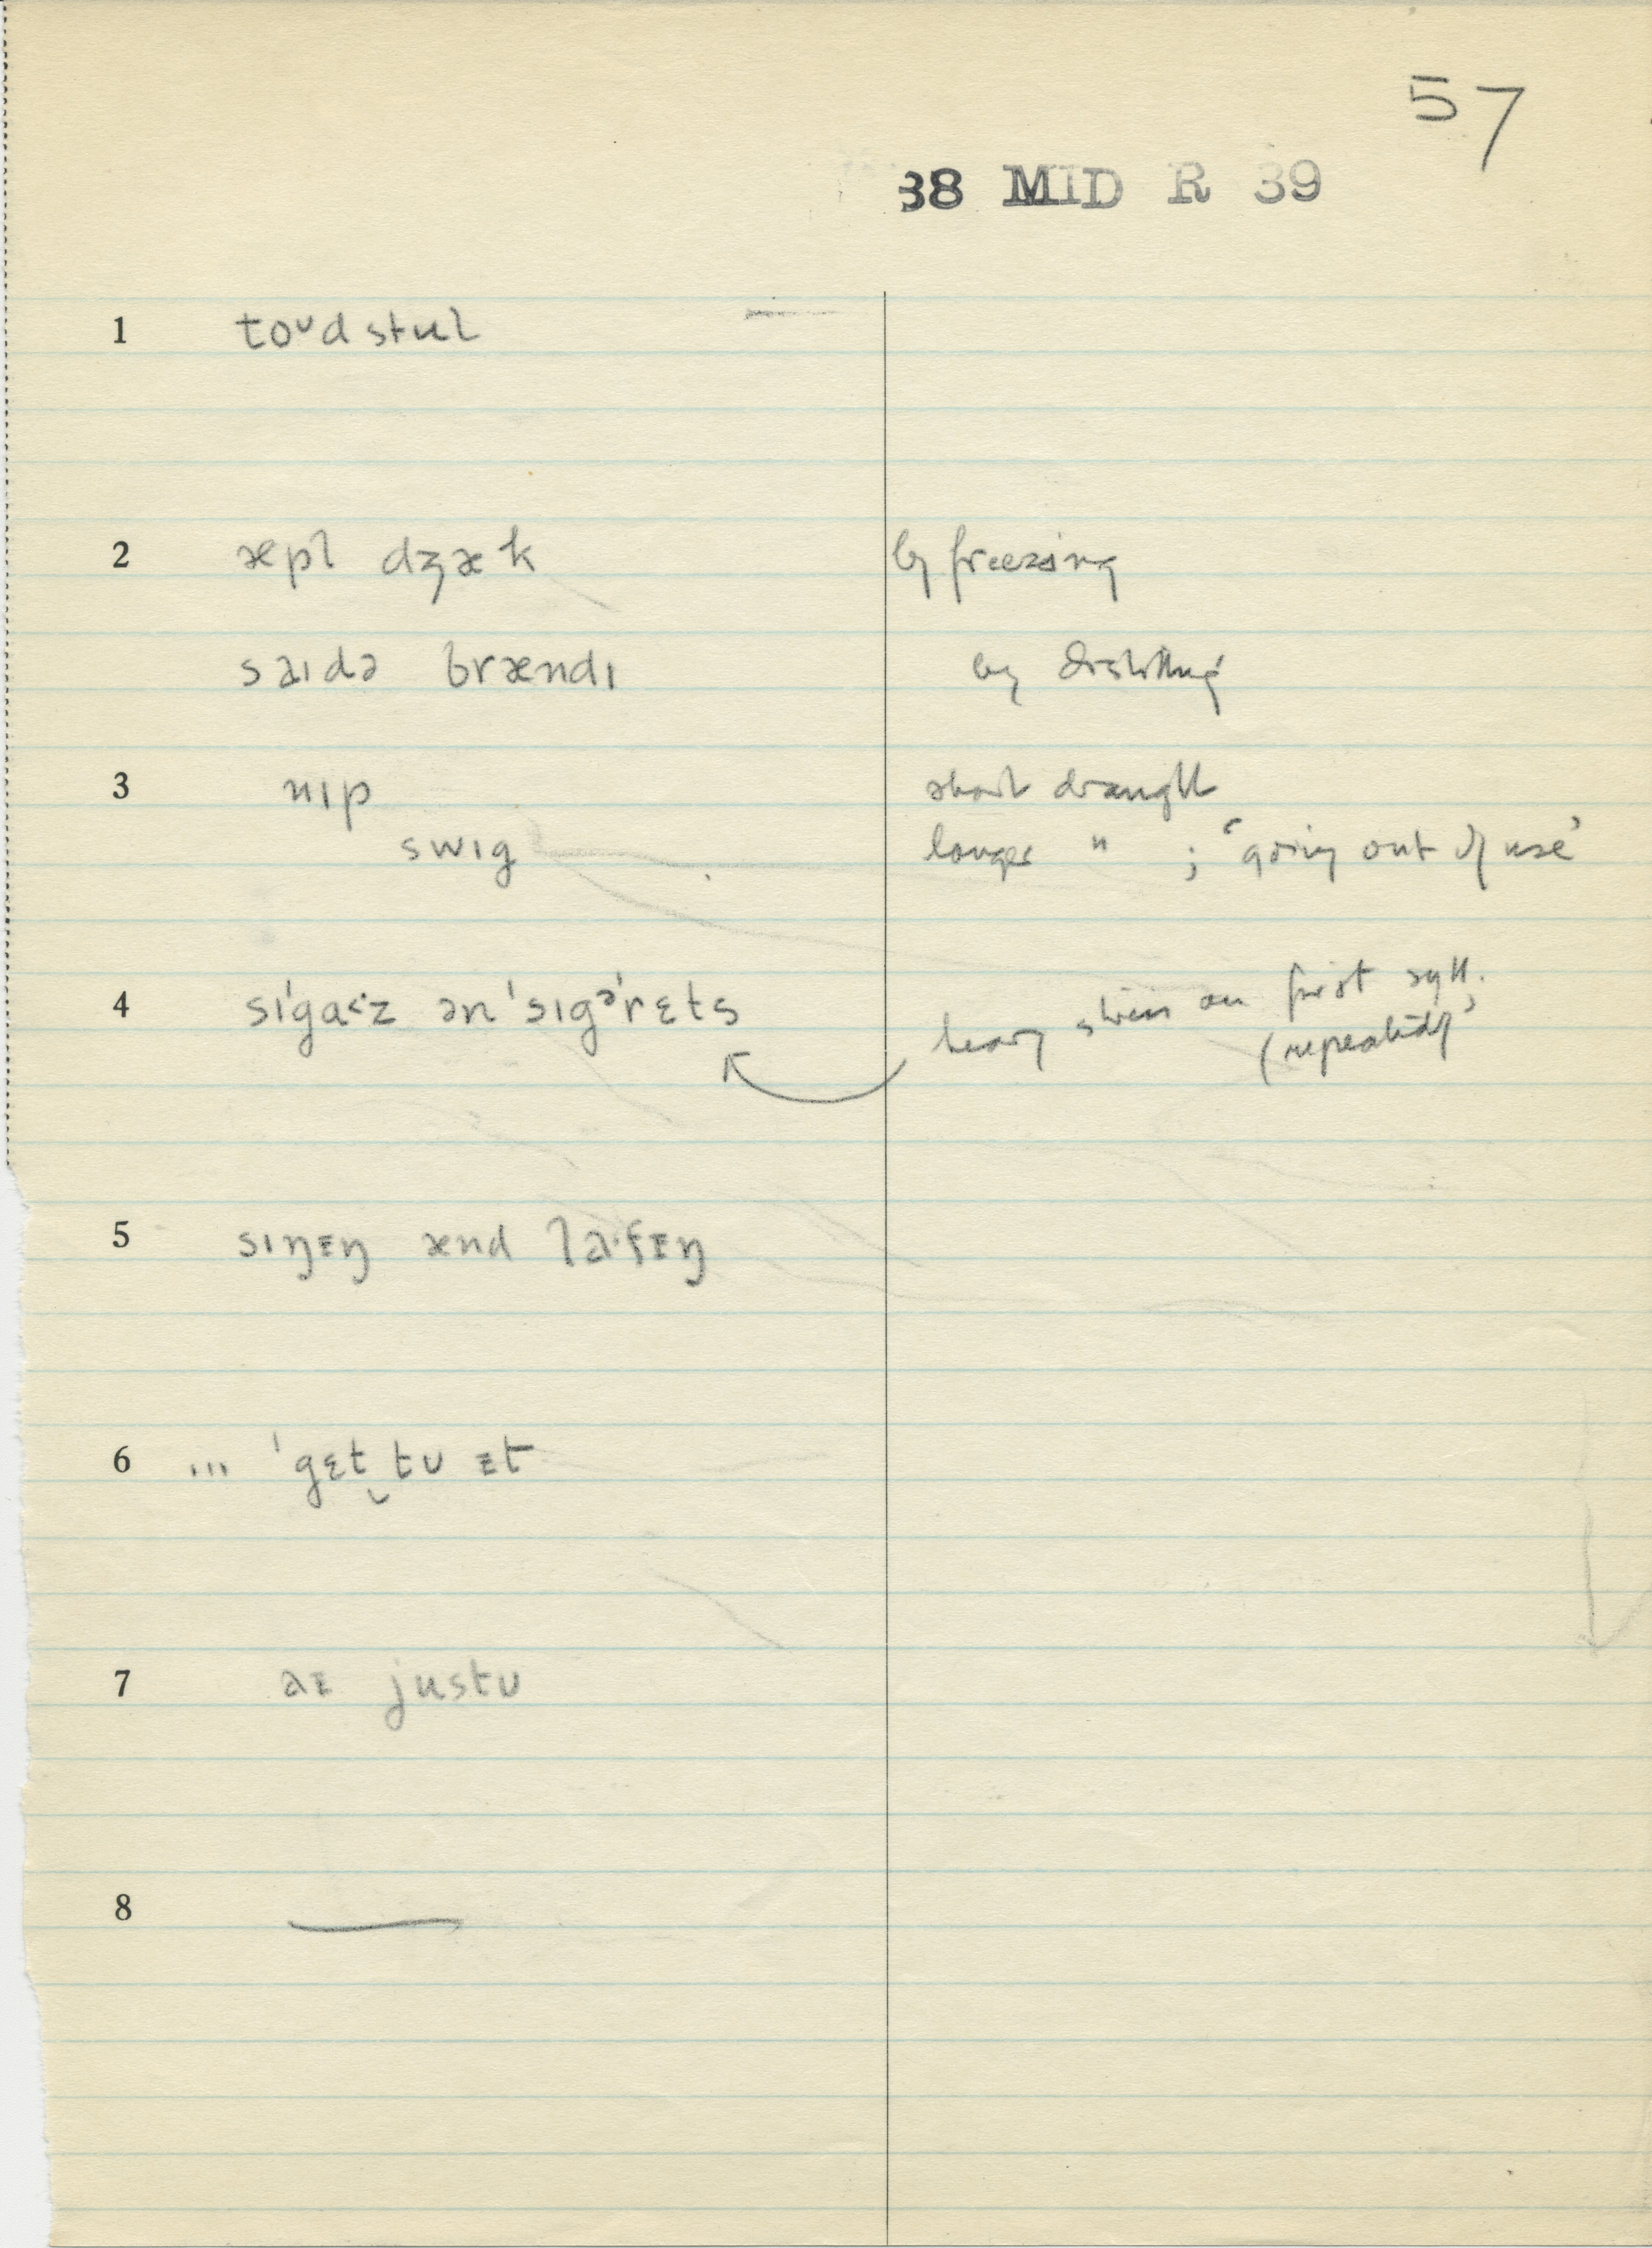 57
38 MID R 39
1 toᴜdstul
2 æpl dʒæk by freezing
saɪdə brændɪ by distilling
3 nɪp short draught
swɪg longer " ; 'going out of use'
4 sɪ'gaːz ən 'sɪgə'rɛts heavy stress on first syll. (repeatedly)
5 sɪŋɪŋ ænd laˑfɪŋ
6 ... 'gɛt‿tᴜ ɪt
7 aɪ justᴜ
8 —